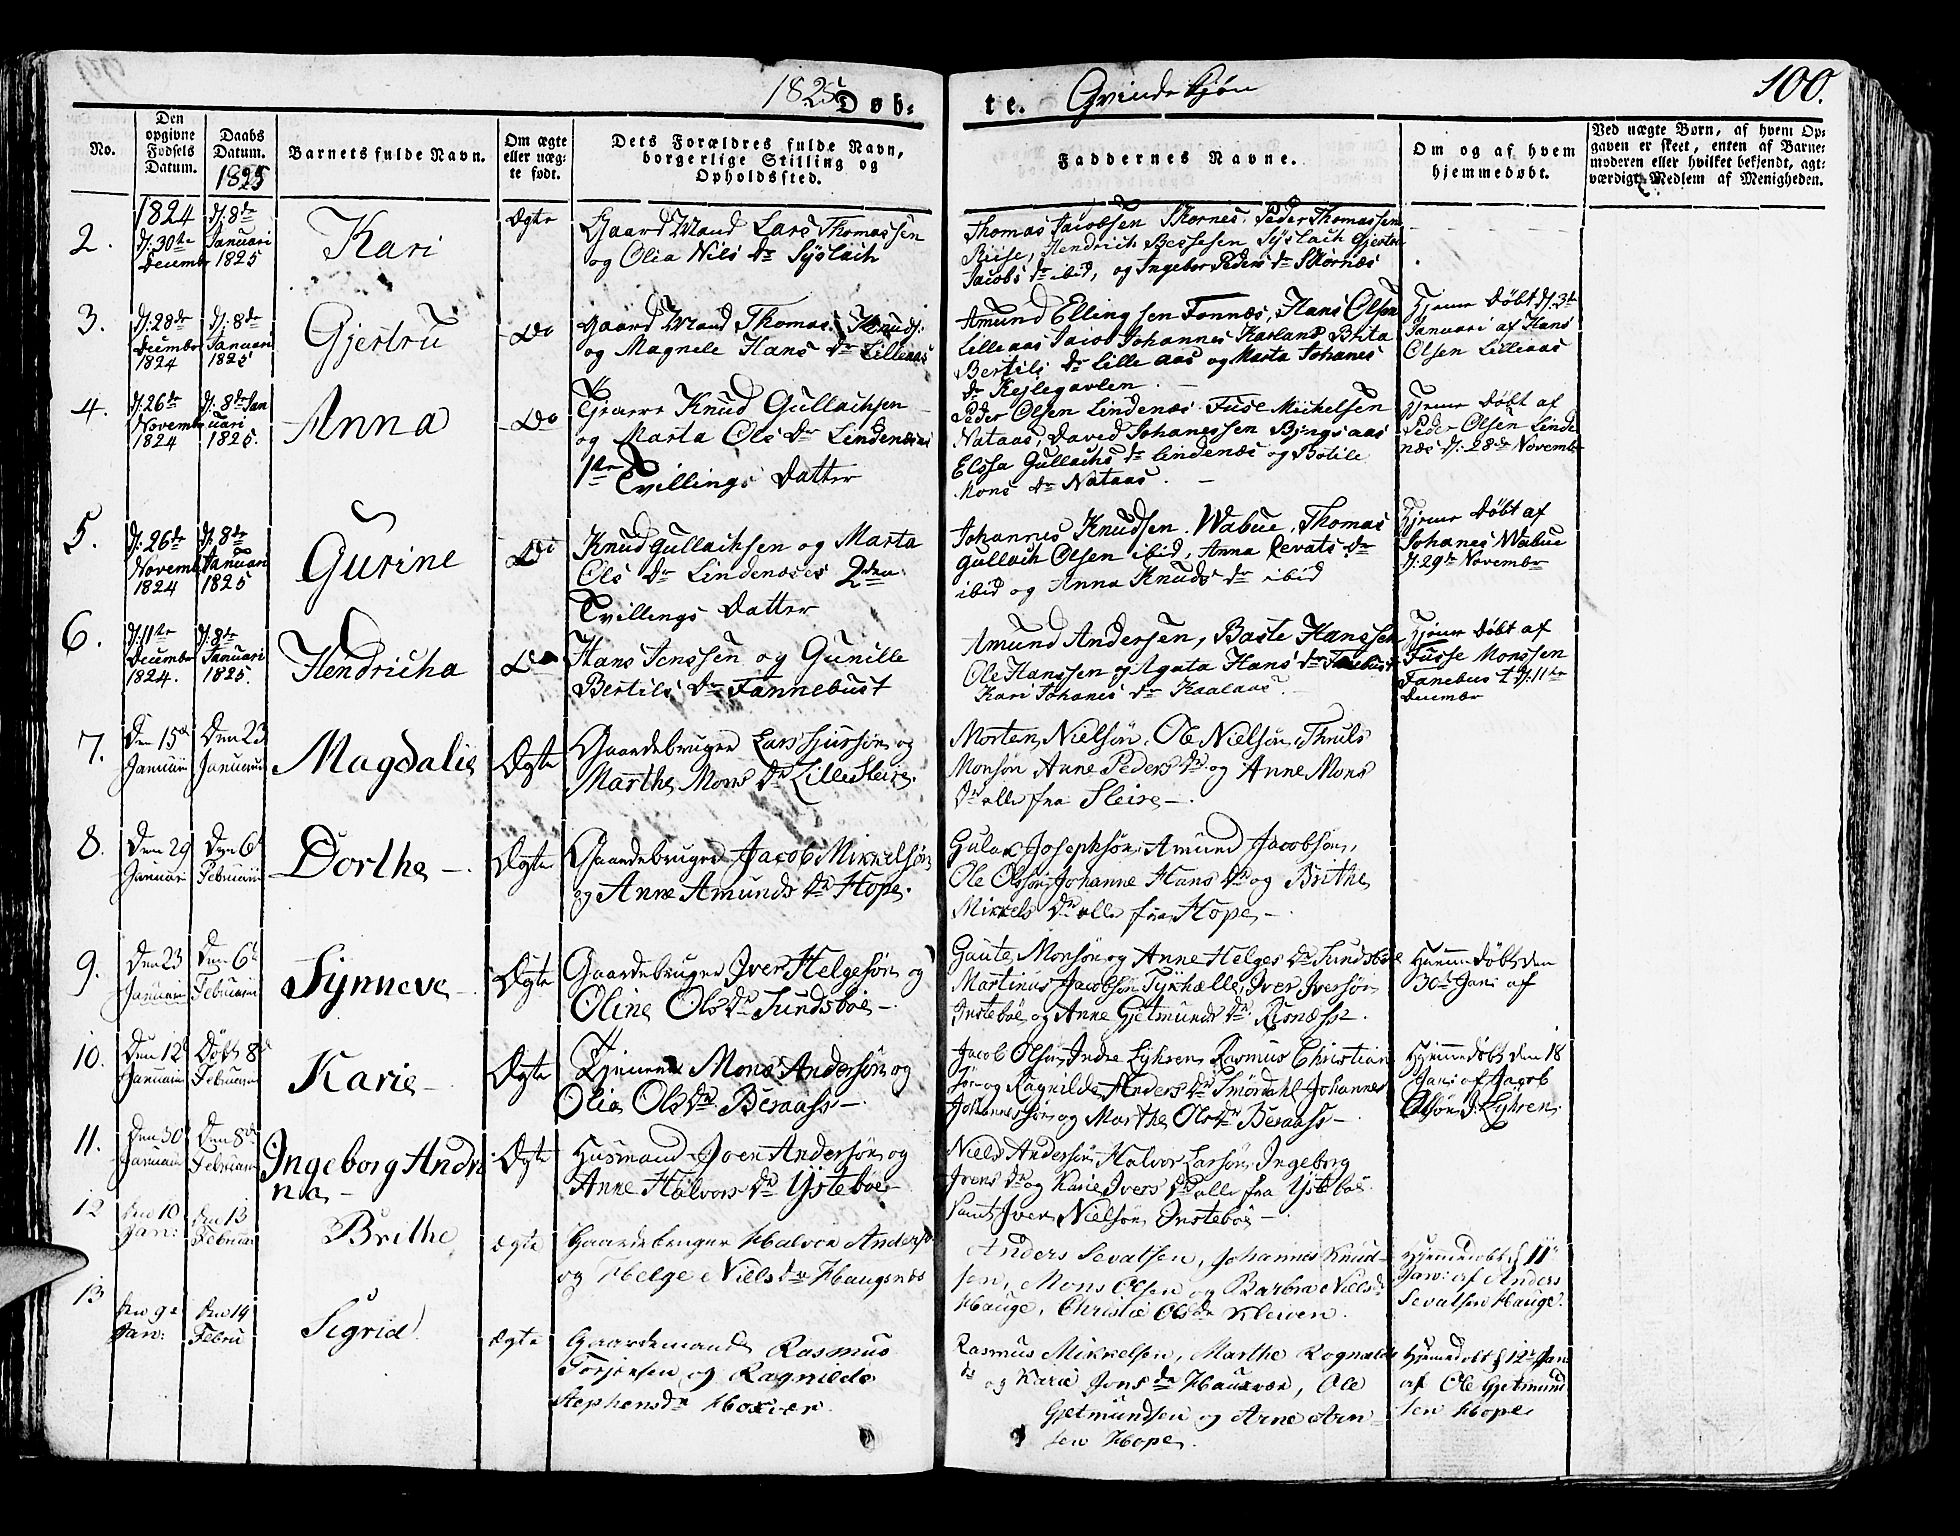 1825 Døb-
te. Qvindekjøn
100.
No.
Den
opgivne
Fødsels
Datum.
Daabs
Datum.
1825
Barnets fulde Navn.
Om ægte
eller uæg-
te født.
Dets Forældres fulde Navn,
borgerlige Stilling og
Opholdssted.
Faddernes Navne.
Om og af hvem
hjemmedøbt.
Ved uægte Børn, af hvem Op-
gaven er skeet, enten af Barne-
moderen eller hvilket bekjendt, agt-
værdigt Medlem af Menigheden.
2.
1824
d: 30te
Decembr
d: 8de
Januari
1825
Kari
Ægte
Gaard Mand Lars Thomassen
og Olia Nils Dr Syslach
Thomas Jacobsen Skornes. Peder Thomassen
Riise, Hendrich Bessesen Syslach Gjertru
Jacobs Dr ibid, og Ingebor Peders Dr Skornæs
3.
d: 28de
Decembr
1824
d: 8de
Januari
1825
Gjertru
Do
Gaard Mand Thomas Knuds:
og Magnele Hans Dr Lilleaas
Amund Ellingsen Fonnæs, Hans Olsen
Lilleaas Jacob Johannes Karland Brita
Bertils Dr Lilleaas og Marta Johanes
Dr Kejlegavlen.
Hjeme Døbt d: 3de
Januari af Hans
Olsen Lilleaas
4.
d: 26de
Novembr
1824
d: 8de Jan
uari
1825.
Anna
Do
Knud Gullachsen
og Marta Ols Dr Lindenæs
1te
Tvillings Datter
Peder Olsen Lindenæs. Fuse Michelsen
Nataas, David Johanessen Byngsaas
Elssa Gullachs Dr Lindenæs og Botile
Mons Dr Nataas.
Hjeme Døbt af
Peder Olsen Linde
næs d: 28de Novembr
5.
d: 26de
Novemb
1824
d: 8de
Januari
1825
Gurine
Do
Knud Gullachsen og Marta
Ols Dr Lindenæs 2den
Tvillings Datter
Johannes Knudsen Wabue, Thomas
Gullach Olsen ibid, Anna Sevats Dr
ibid og Anna Knuds Dr ibid
Hjeme Døbt af
Johanes Wabue
d: 29de Novembr
6.
d: 11te
Decembr
1824.
d: 8de
Januari
1825.
Hendricha
Do
Hans Jenssen og Gunille
Bertils Dr Tannebust
Amund Andersen, Baste Hanssen
Ole Hanssen og Agata Hans Dr Tanebust
Kari Johanes Dr Kaalaas.
Hjeme Døbt af
Fusse Monssen
Tanebust d: 11te
Decembr
7.
Den 15de
Januari
Den 23
Januarii
Magdalie
Ægte
Gaardebruger Lars Siursøn og
Marthe Mons Dr Lille Sleire.
Morten Nielsøn. Ole Nielsøn, Thruls
Monsøn Anne Peders Dr og Anne Mons
Dr alle fra Sleire –.
8.
Den 29
Januari
Den 6te
Februarii
Dorthe –.
Ægte
Gaardebruger Jacob Mikkelsøn
og Anne Amunds Dr Hope.
Gulak Josephsøn, Amund Jacobsøn,
Ole Olssøn, Johanne Hans Dr og Brithe
Mikkels Dr alle fra Hope –.
9.
Den 23
Januari
Den 6te
Februarii
Synneve –
Ægte
Gaardebruger Iver Helgesøn og
Oline Ols Dr Sundsbøe –
Gaute Monsøn og Anne Helges Dr Sundsbøe
Martinus Jacobsøn Tykhelle, Iver Iversøn
Instebøe og Anne Gjetmunds Dr Risnæss.
Hjemmedøbt den
30te Jan: af
10.
Den 12te
Januarii
Døbt 8de
Februarii
Karie –
Ægte
Tjenere Mons Andersøn og
Olia Ols Dr Beraass –.
Jacob Olsøn Indre Lyhren, Rasmus Christian
søn og Ragnilde Anders Dr Smørdahl Johannes
Johannessøn og Marthe Ols Dr Beraass –
Hjemmedøbt den 18
Jan: af Jacob
Olsøn I: Lyhren.
11.
Den 30
Januarii
Den 8de
Februarii
Ingeborg Andri
na –
Ægte
Husmand Joen Andersøn og
Anne Halvors Dr Ystebøe
Niels Andersøn, Halvor Larsøn, Ingeborg
Ivers Dr og Karie Ivers Dr alle fra Ystebøe
samt Iver Nielsøn Instebøe –.
12
den 10
Jan:
den 13
Februar
Brithe
ægte
Gaardebruger Halvor Anders:
og Helge Niels Dr Haugsnæs
Anders Sevatsen, Johannes Knud-
sen, Mons Olsen og Barbra Niels Dr
Hauge, Christie Ols Dr Kleiven.
Hjemmedøbt d 11te
Jan: af Anders
Sevatsen Hauge.
13
den 9de
Jan:
den 14
Febru
Sigrid
ægte
Gaardemand Rasmus
Torjersen og Ragnilde
Stephens Dr Hoxvær
Rasmus Mikkelsen, Marthe Rognalds
Dr og Karie Jons Dr Hauxvær, Ole
Gjetmundsen og Arne Arn-
sen Hope
Hjemedøbt d 12te Jan
af Ole Gjetmund
sen Hope